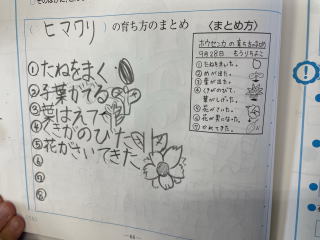 (ヒマワリ)の育ち方のまとめ
①たねをまく
②子葉がでる
③葉はえて
④くきがのびた
⑤花がさいてきた
⑥
⑦
⑧
〈まとめ方〉
ホウセンカの育ち方のまとめ
9月28日 もうりちよこ
①たねをまいた。
②めが出た。
③葉が出た。
④くきがのびて、
葉がしげった。
⑤花がさいた。
⑥花が実になった。
⑦かれてきた。